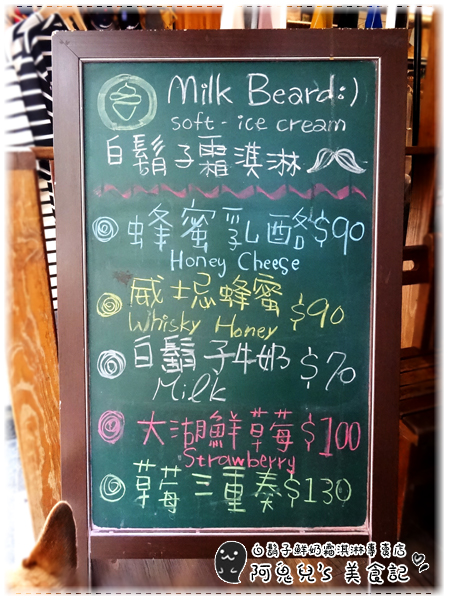 Milk Beard:)
soft-ice cream
白鬍子霜淇淋
蜂蜜乳酪$90
Honey Cheese
威士忌蜂蜜 $90
Whisky Honey
白鬍子牛奶 $70
Milk
大湖鮮草莓$100
Strawberry
草莓三重奏$130
白鬍子鮮奶霜淇淋專賣店
阿兔兒's 美食記